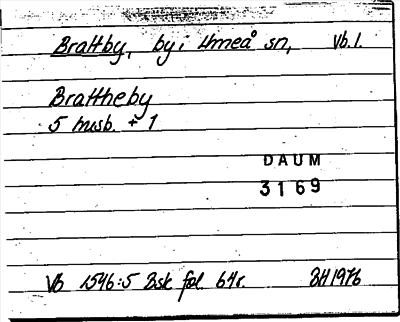 Brattby, by i Umeå sn, Vb.l.
Brattheby
5 husb. + 1
DAUM
3169
Vb 1546:5 Bsk fol. 64r. BH 1976